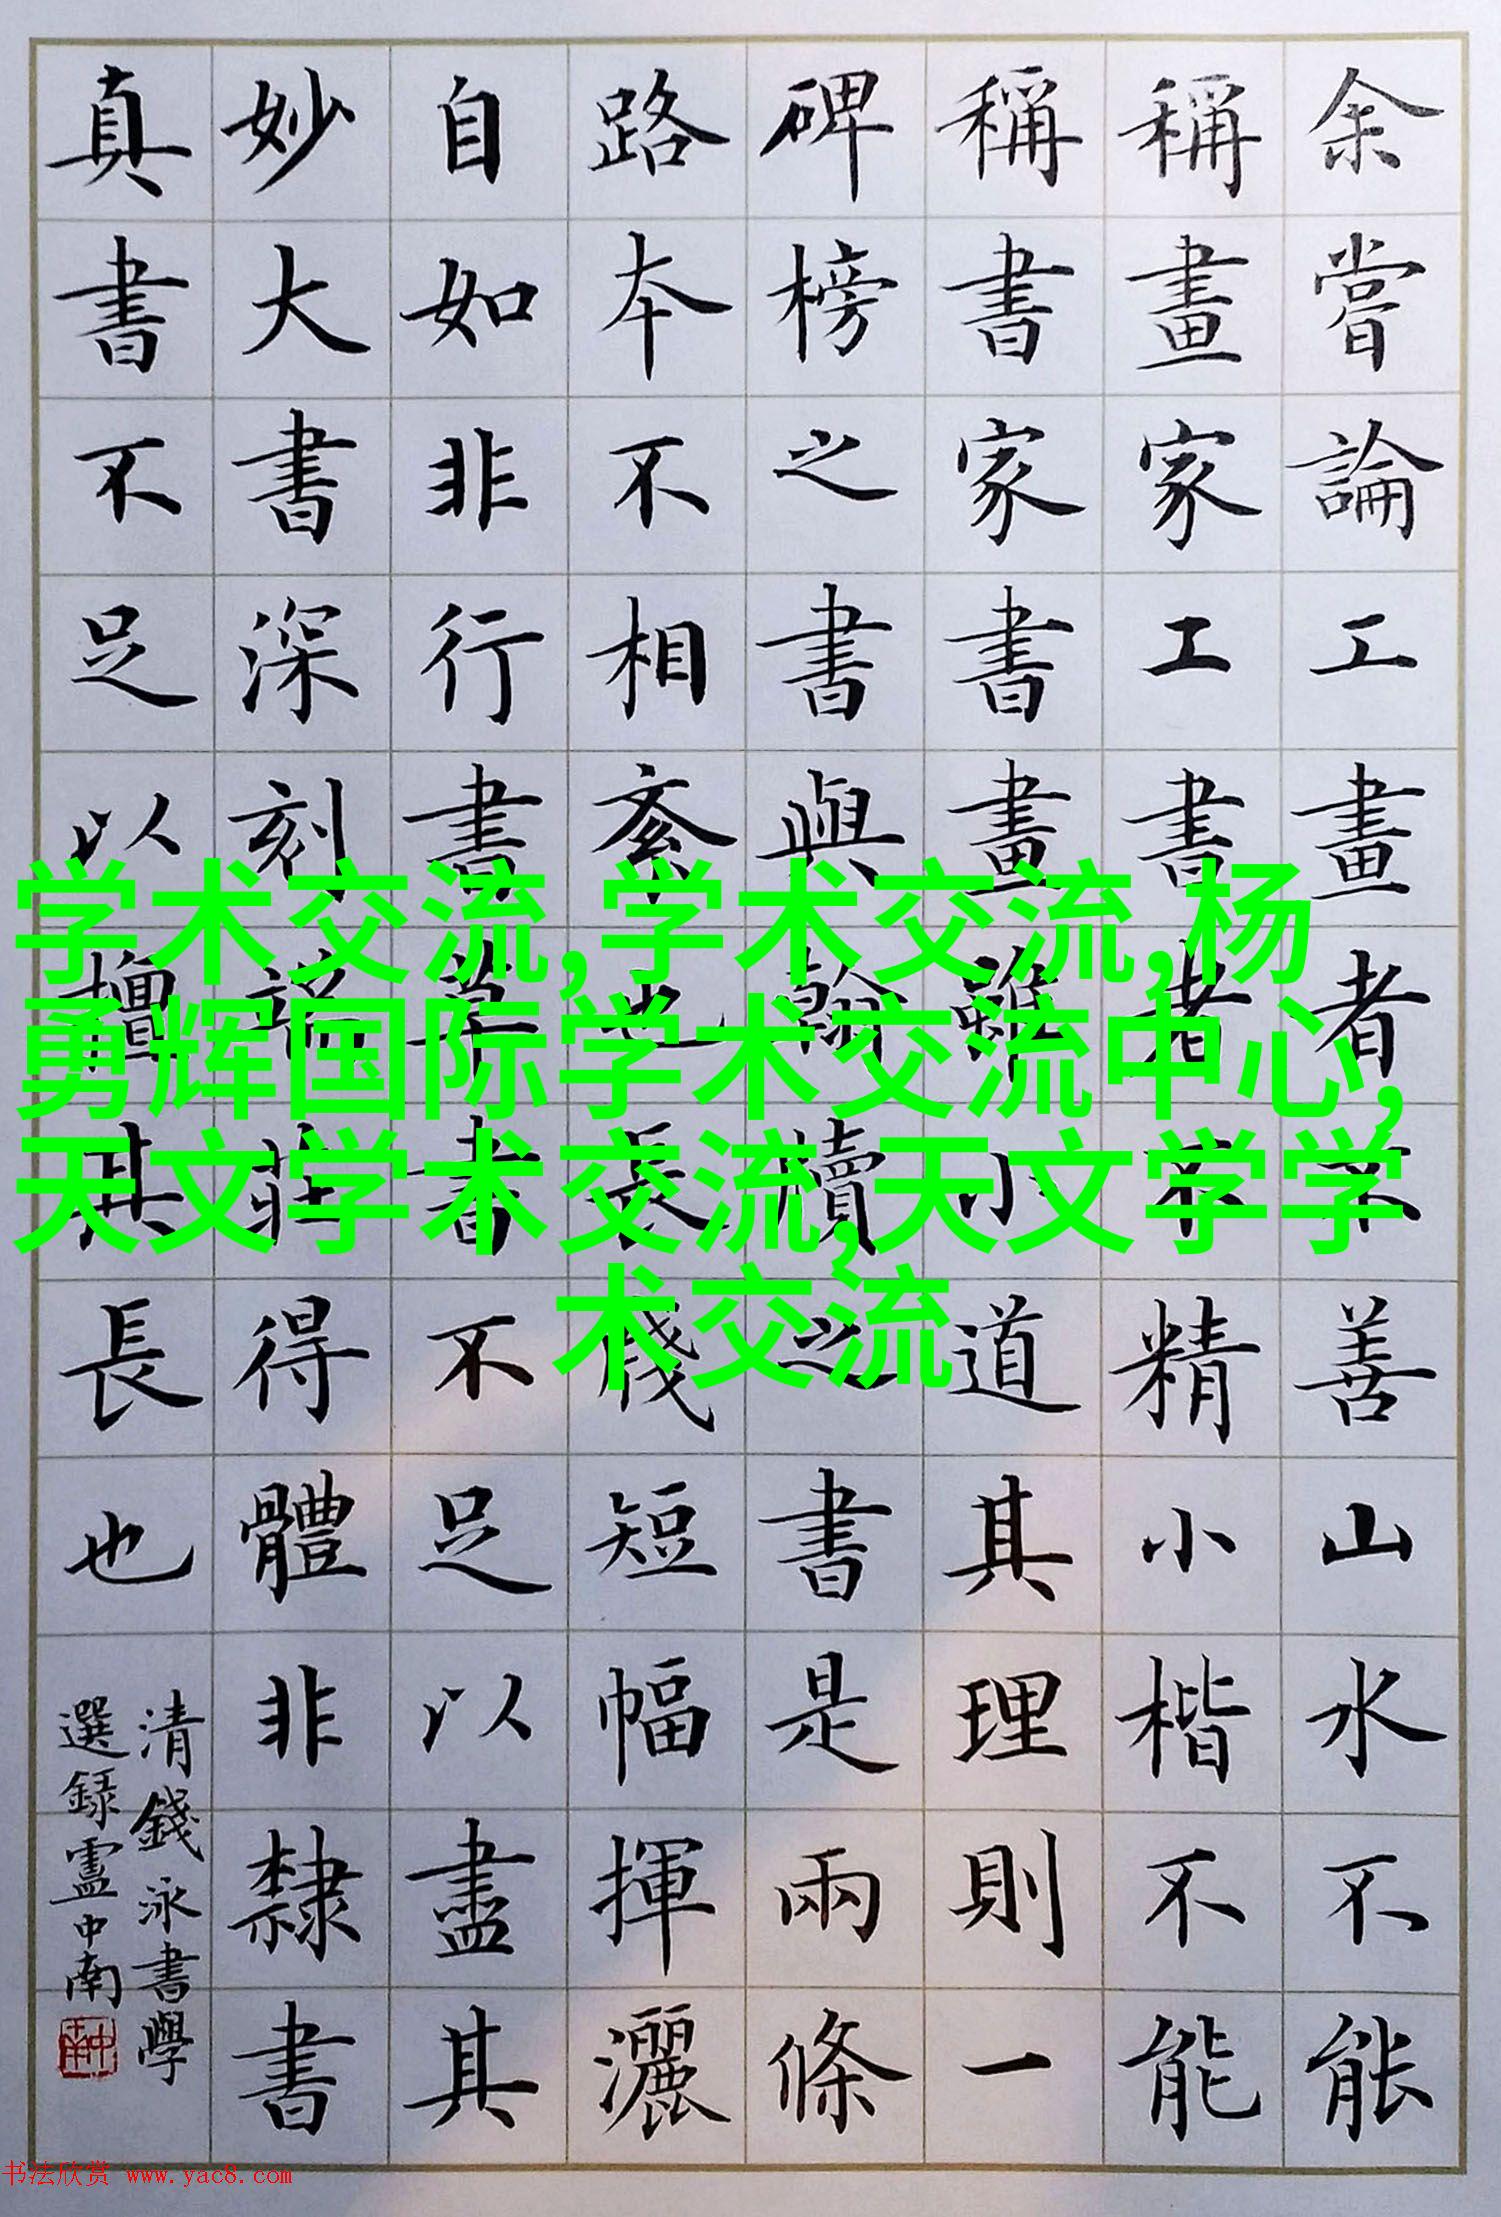 余嘗論工畫者不善山水不能
稱畫家工書者不精小楷不能
稱書家書畫雖小道其理則一
碑榜之書與翰牘之書是兩條
路本不相紊也長牋短幅揮灑
自如非行書草書不足以盡其
妙大書深刻端莊得體非隸書
真書不足以擅其長也
清錢泳書學
選録盧中南
学术交流,学术交流,杨
勇辉国际学术交流中心,
天文学术交流,天文学学
术交流
书法欣赏 www.yac8.com